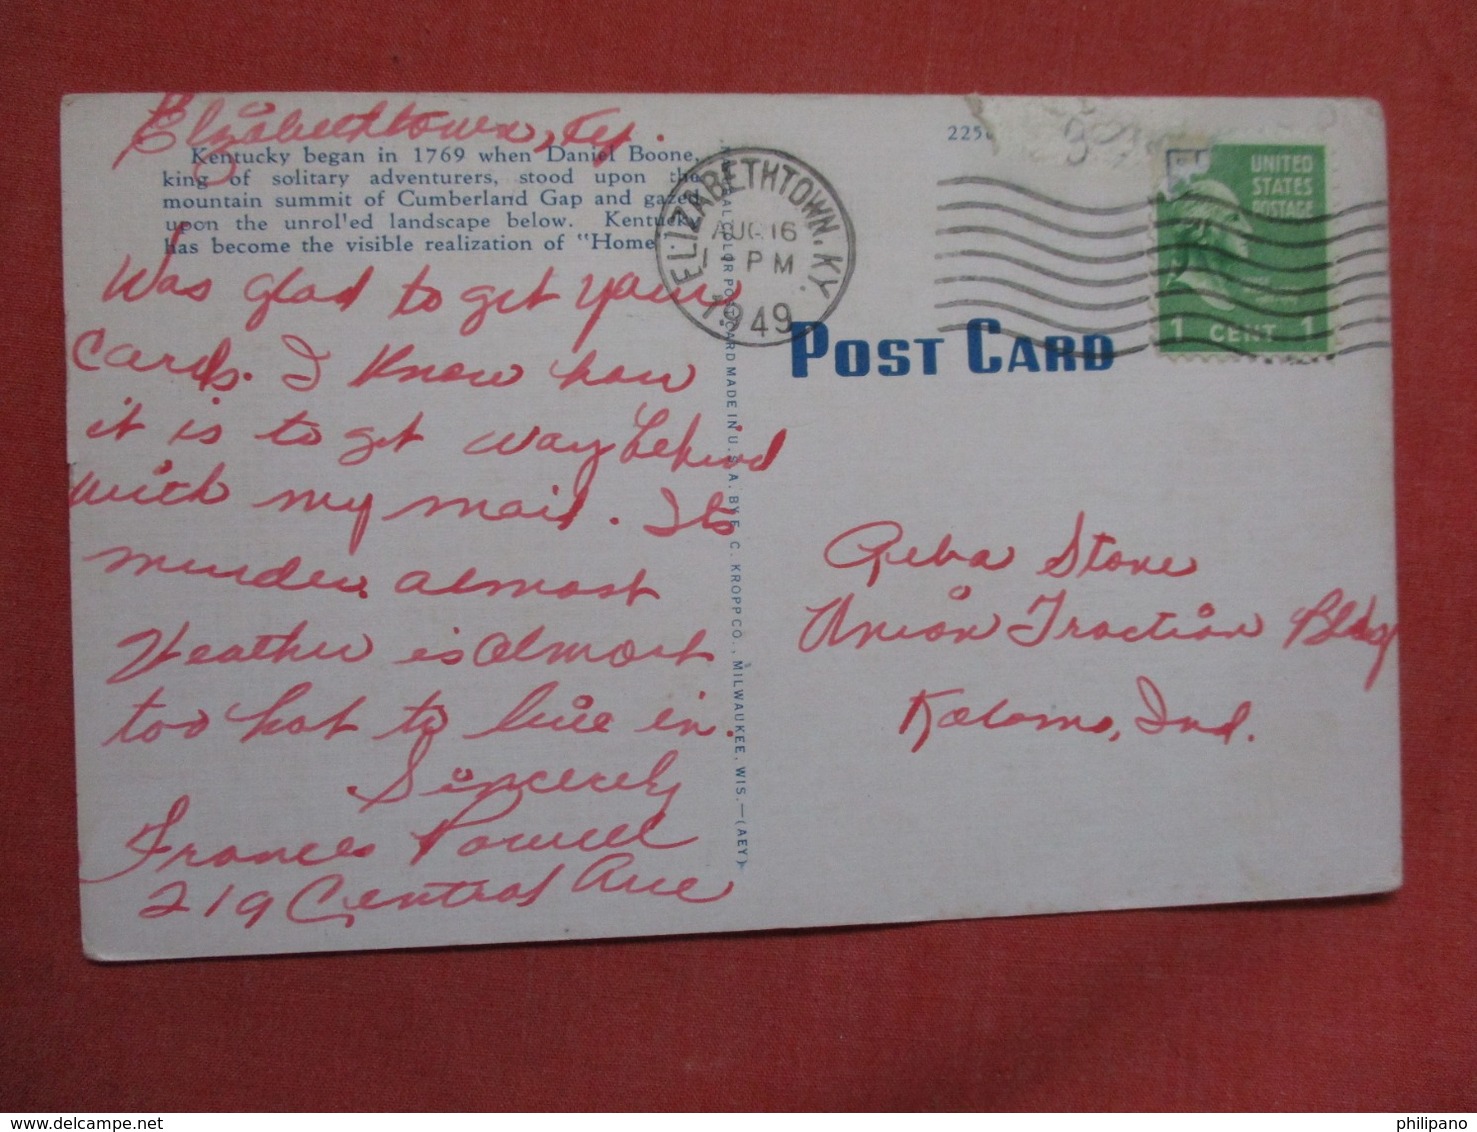 Elizabethtown, Ky.
Kentucky began in 1769 when Daniel Boone,
king of solitary adventurers, stood upon the
mountain summit of Cumberland Gap and gazed
upon the unrol'ed landscape below. Kentucky
has become the visible realization of "Home
Was glad to get your
cards. I know how
it is to get way behind
with my mail. Its
murder almost
Weather is almost
too hot to live in.
Sincerely
Frances Powell
219 Central Ave
COLOR POST CARD MADE IN U.S.A. BY E. C. KROPP CO., MILWAUKEE, WIS.—(AEY)
ELIZABETHTOWN. KY.
AUG 16
1 PM
1949
UNITED
STATES
POSTAGE
1 CENT 1
POST CARD
Stone
Union Traction Bldg
Kokomo, Ind.
philipano